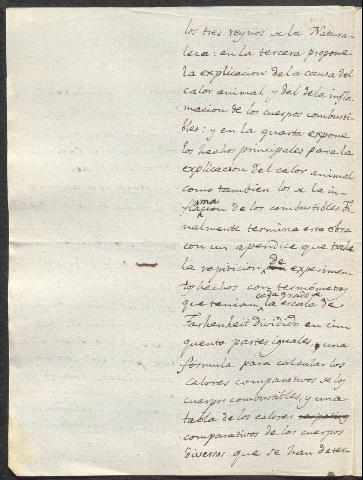 los tres reynos de la Natura-
leza: en la tercera propone
la explicacion de la causa del
calor animal y del de la infla-
macion de los cuerpos combusti-
bles: y en la quarta expone
los hechos principales para la
explicacion del calor animal
como tambien los de la in-
flamacion de los combustibles. Fi-
nalmente termina esta obra
con un apendice que trahe
la repiticion de experimen-
tos hechos con termómetros
que tenian cada grado de la escala de
Farhenheit dividido en cin-
quenta partes iguales, y una
fórmula para calcular los
calores comparativos de los
cuerpos combustibles, y una
tabla de los calores
comparativos de los cuerpos
diversos que se han deter-